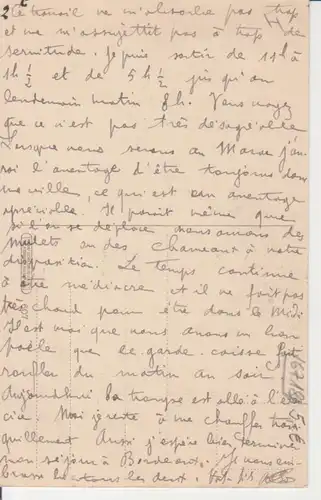 2e
Le travail ne m'absorbe pas trop
et ne m'assujettit pas à trop de
servitude. Je puis sortir de 11h à
1h ½ et de 5h ½ jusqu'au
lendemain matin 8h. Vous voyez
que ce n'est pas très désagréable
Lorsque nous serons au Maroc j'au
rai l'avantage d'être toujours dans
une ville, ce qui est un avantage
appréciable. Il parait même que
si l'on se déplace nous aurons des
mulets ou des chameaux à notre
disposition. Le temps continue
à être médiocre et il ne fait pas
très chaud pour être dans le Midi
Il est vrai que nous avons un bon
poêle que le garde-caisse fait
ronfler du matin au soir
Aujourd'hui la troupe est allée à l'exer
cice Moi je reste à me chauffer tran
quillement Aussi j'espère bien terminer
mon séjour à Bordeaux. Je vous em
brasse tous les deux.